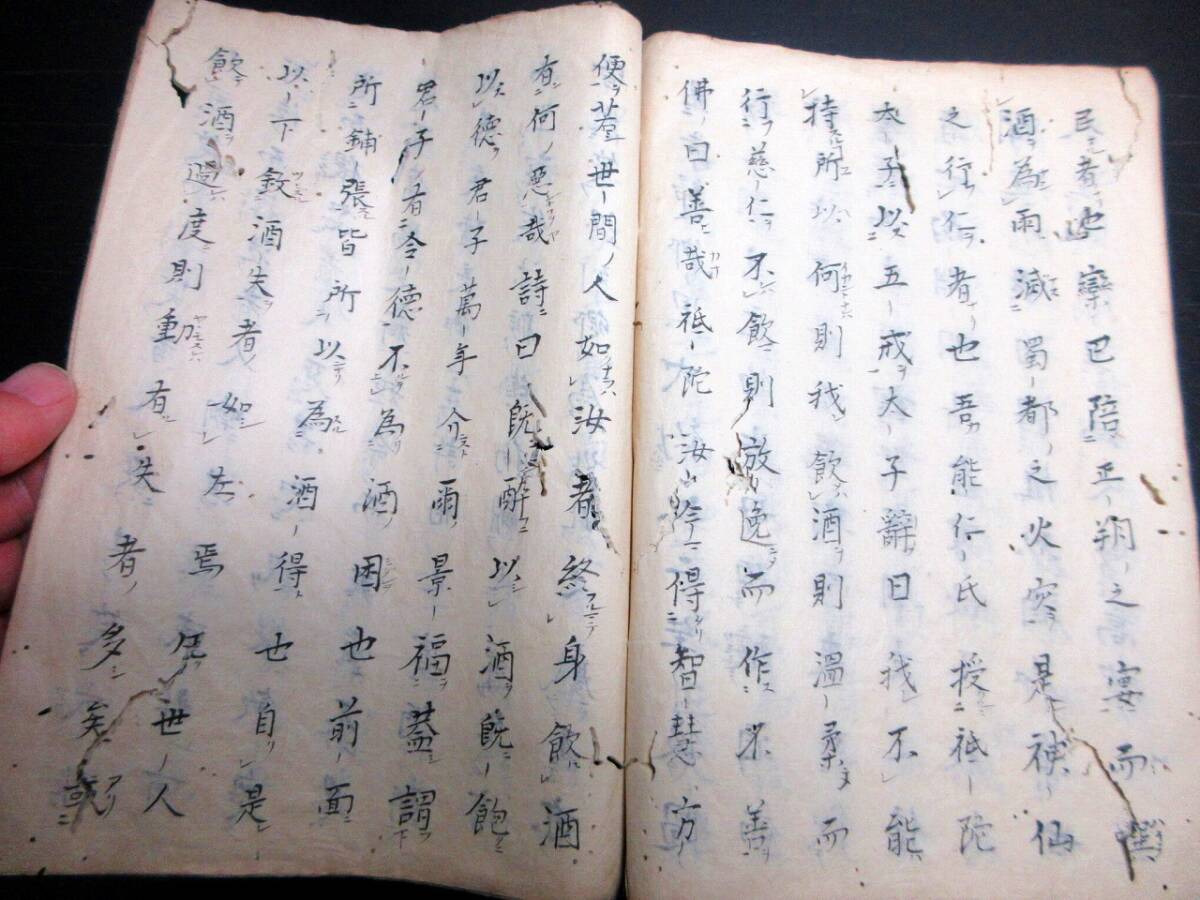 民者也欒巴陪正朔之宴而噀
酒為雨滅蜀都之火灾是神仙
之行仁者也吾能仁氏授祗陀
太子以五戒太子辭曰我不能
持所以何則我飲酒則温柔而
行慈仁不飲則放逸而作不善
佛曰善哉祗陀汝得智慧方
便若世間人如汝者終身飲酒
有何惡哉詩曰既醉以酒既飽
以德君子萬年介爾景福蓋謂
君子有令德不為酒困也前面
所鋪張皆所以為酒得也自是
以下敘酒失者如左焉凡世人
飲酒過度則動有失者多矣或